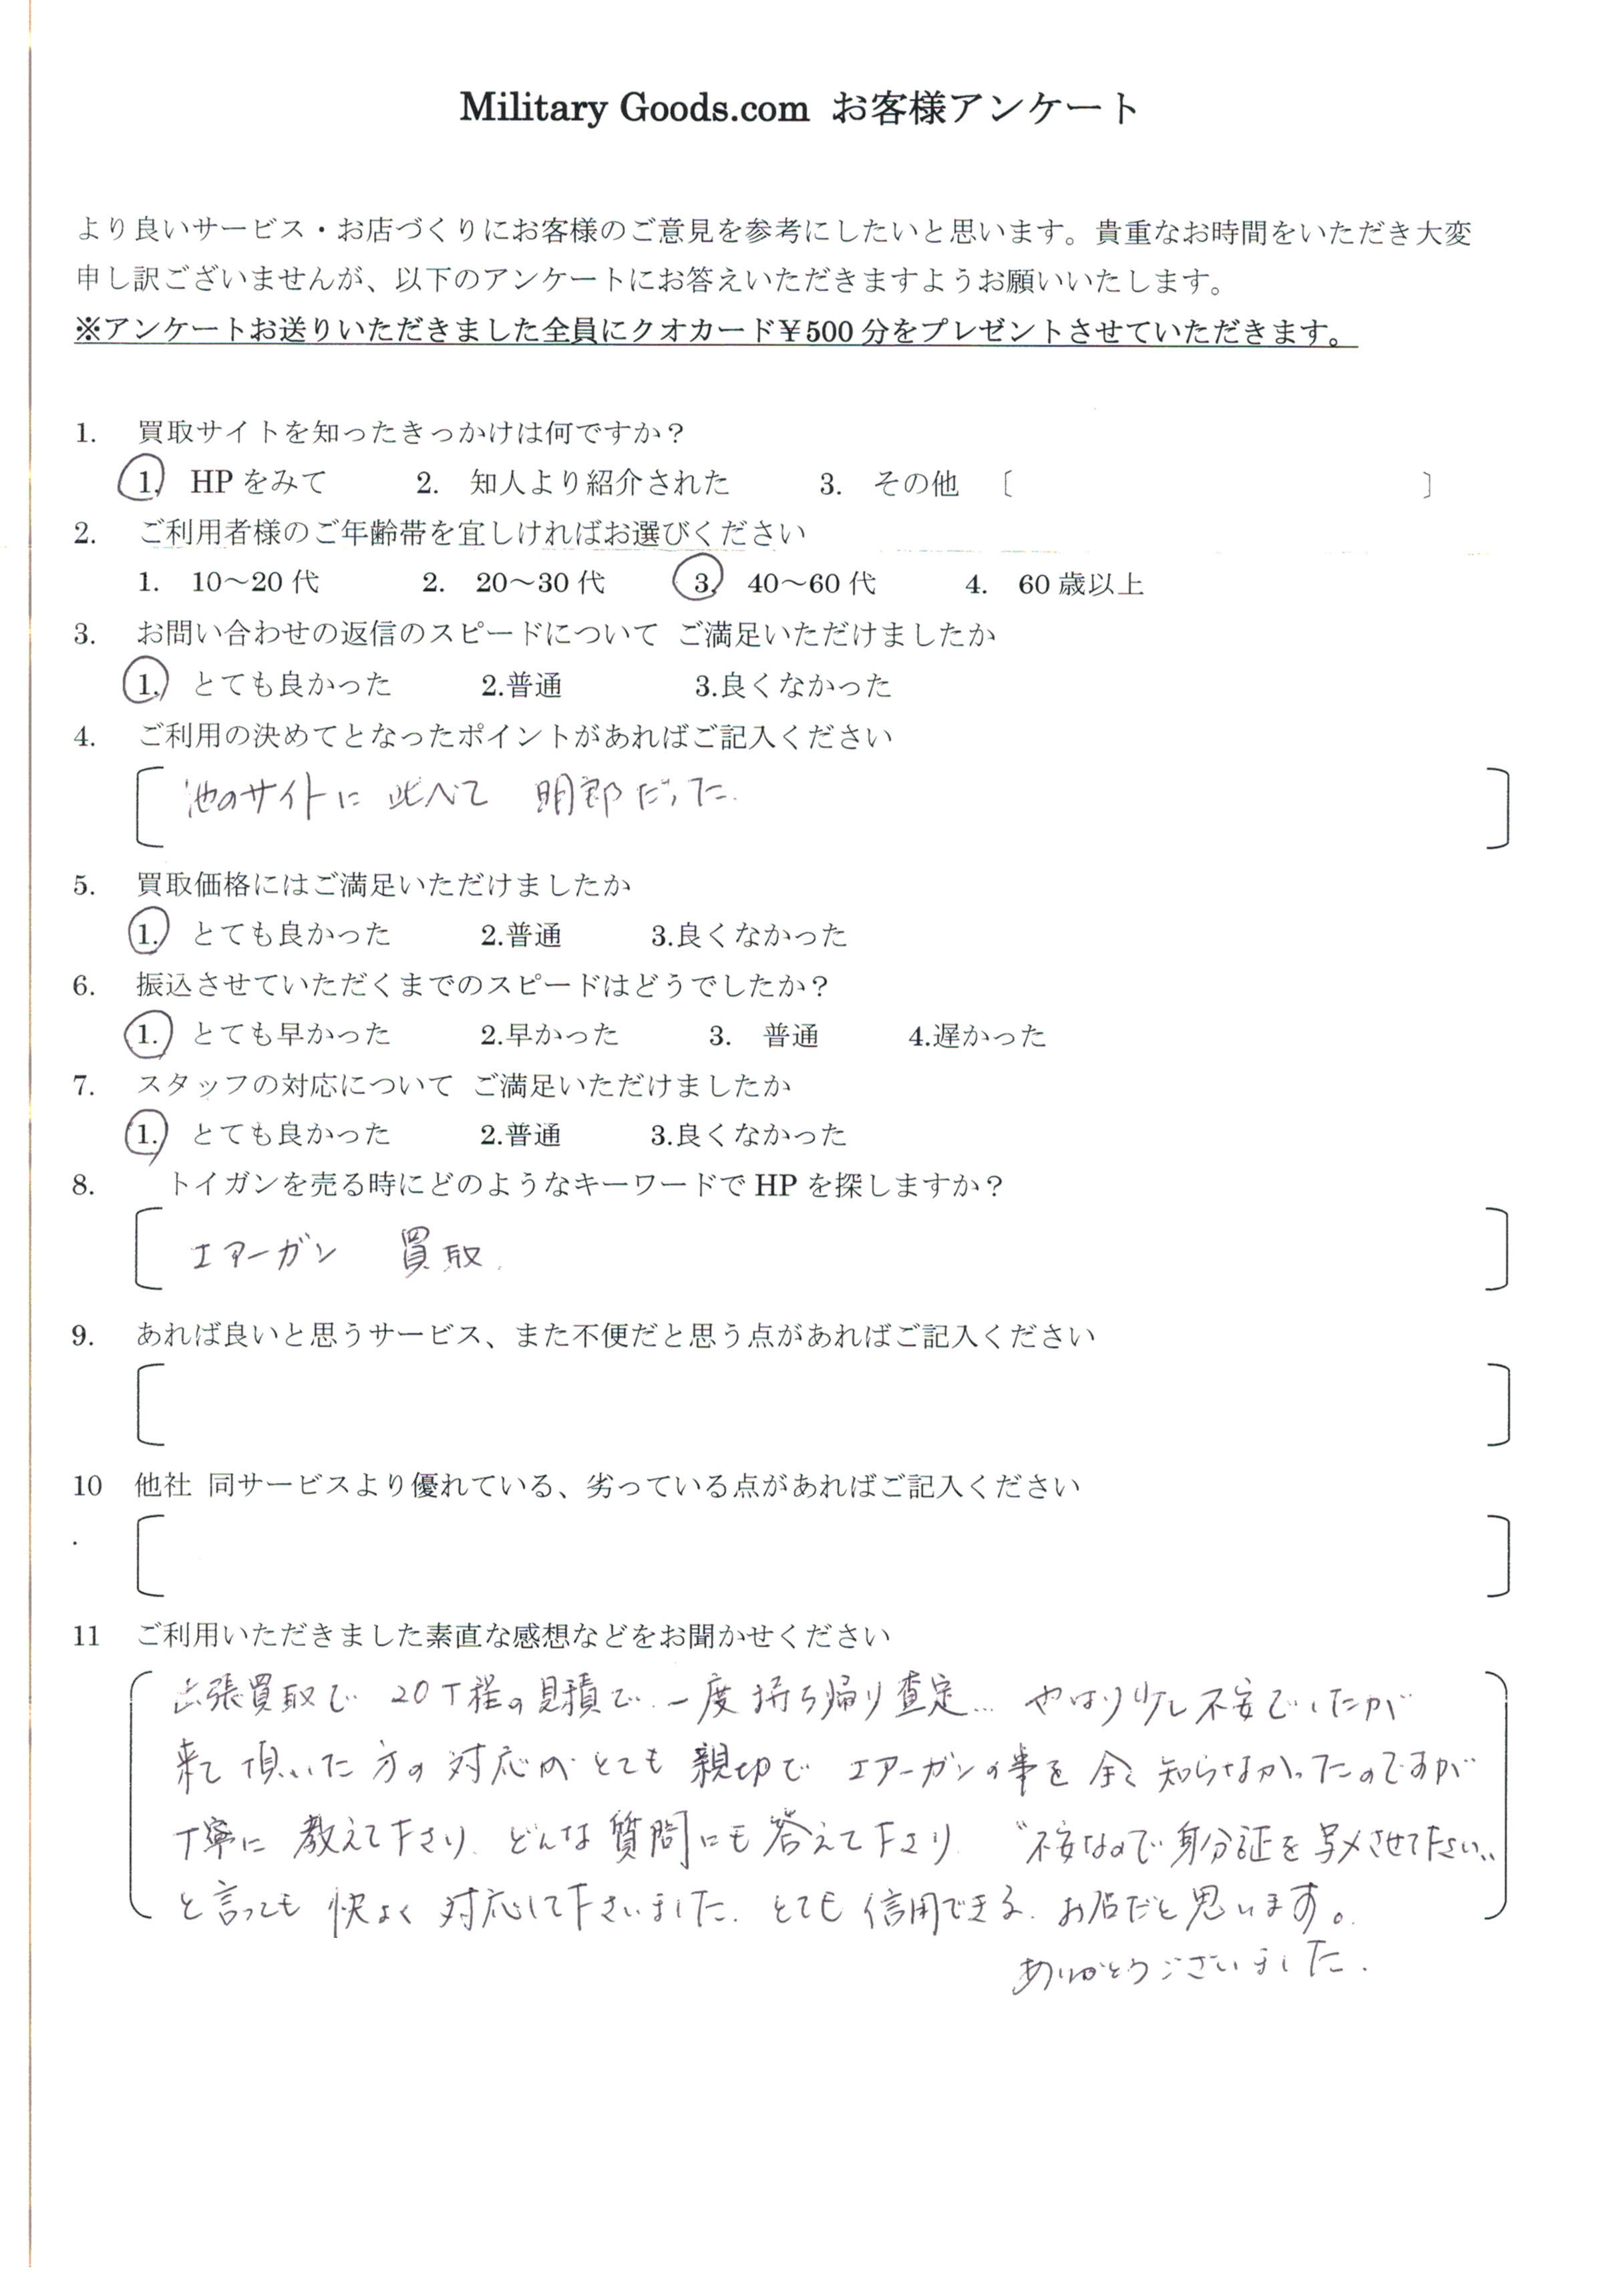 Military Goods.com お客様アンケート
より良いサービス・お店づくりにお客様のご意見を参考にしたいと思います。貴重なお時間をいただき大変
申し訳ございませんが、以下のアンケートにお答えいただきますようお願いいたします。
※アンケートお送りいただきました全員にクオカード￥500 分をプレゼントさせていただきます。
1. 買取サイトを知ったきっかけは何ですか？
1. HP をみて 2. 知人より紹介された 3. その他 〔 〕
2. ご利用者様のご年齢帯を宜しければお選びください
1. 10～20 代 2. 20～30 代 3. 40～60 代 4. 60 歳以上
3. お問い合わせの返信のスピードについて ご満足いただけましたか
1. とても良かった 2.普通 3.良くなかった
4. ご利用の決めてとなったポイントがあればご記入ください
池のサイトに 比べて 明郎だった.
5. 買取価格にはご満足いただけましたか
1. とても良かった 2.普通 3.良くなかった
6. 振込させていただくまでのスピードはどうでしたか？
1. とても早かった 2.早かった 3. 普通 4.遅かった
7. スタッフの対応について ご満足いただけましたか
1. とても良かった 2.普通 3.良くなかった
8. トイガンを売る時にどのようなキーワードで HP を探しますか？
エアーガン 買取.
9. あれば良いと思うサービス、また不便だと思う点があればご記入ください
10. 他社 同サービスより優れている、劣っている点があればご記入ください
11 ご利用いただきました素直な感想などをお聞かせください
出張買取で 20丁程の見積で. 一度持ち帰り査定... やはり少し不安でしたが
来て頂いた方の対応がとても親切で エアーガンの事を全く知らなかったのですが
丁寧に教えて下さり. どんな質問にも答えて下さり. “不安なので身分証を写メさせて下さい”
と言っても快よく対応して下さいました. とても信用できる. お店だと思います。
ありがとうございました.